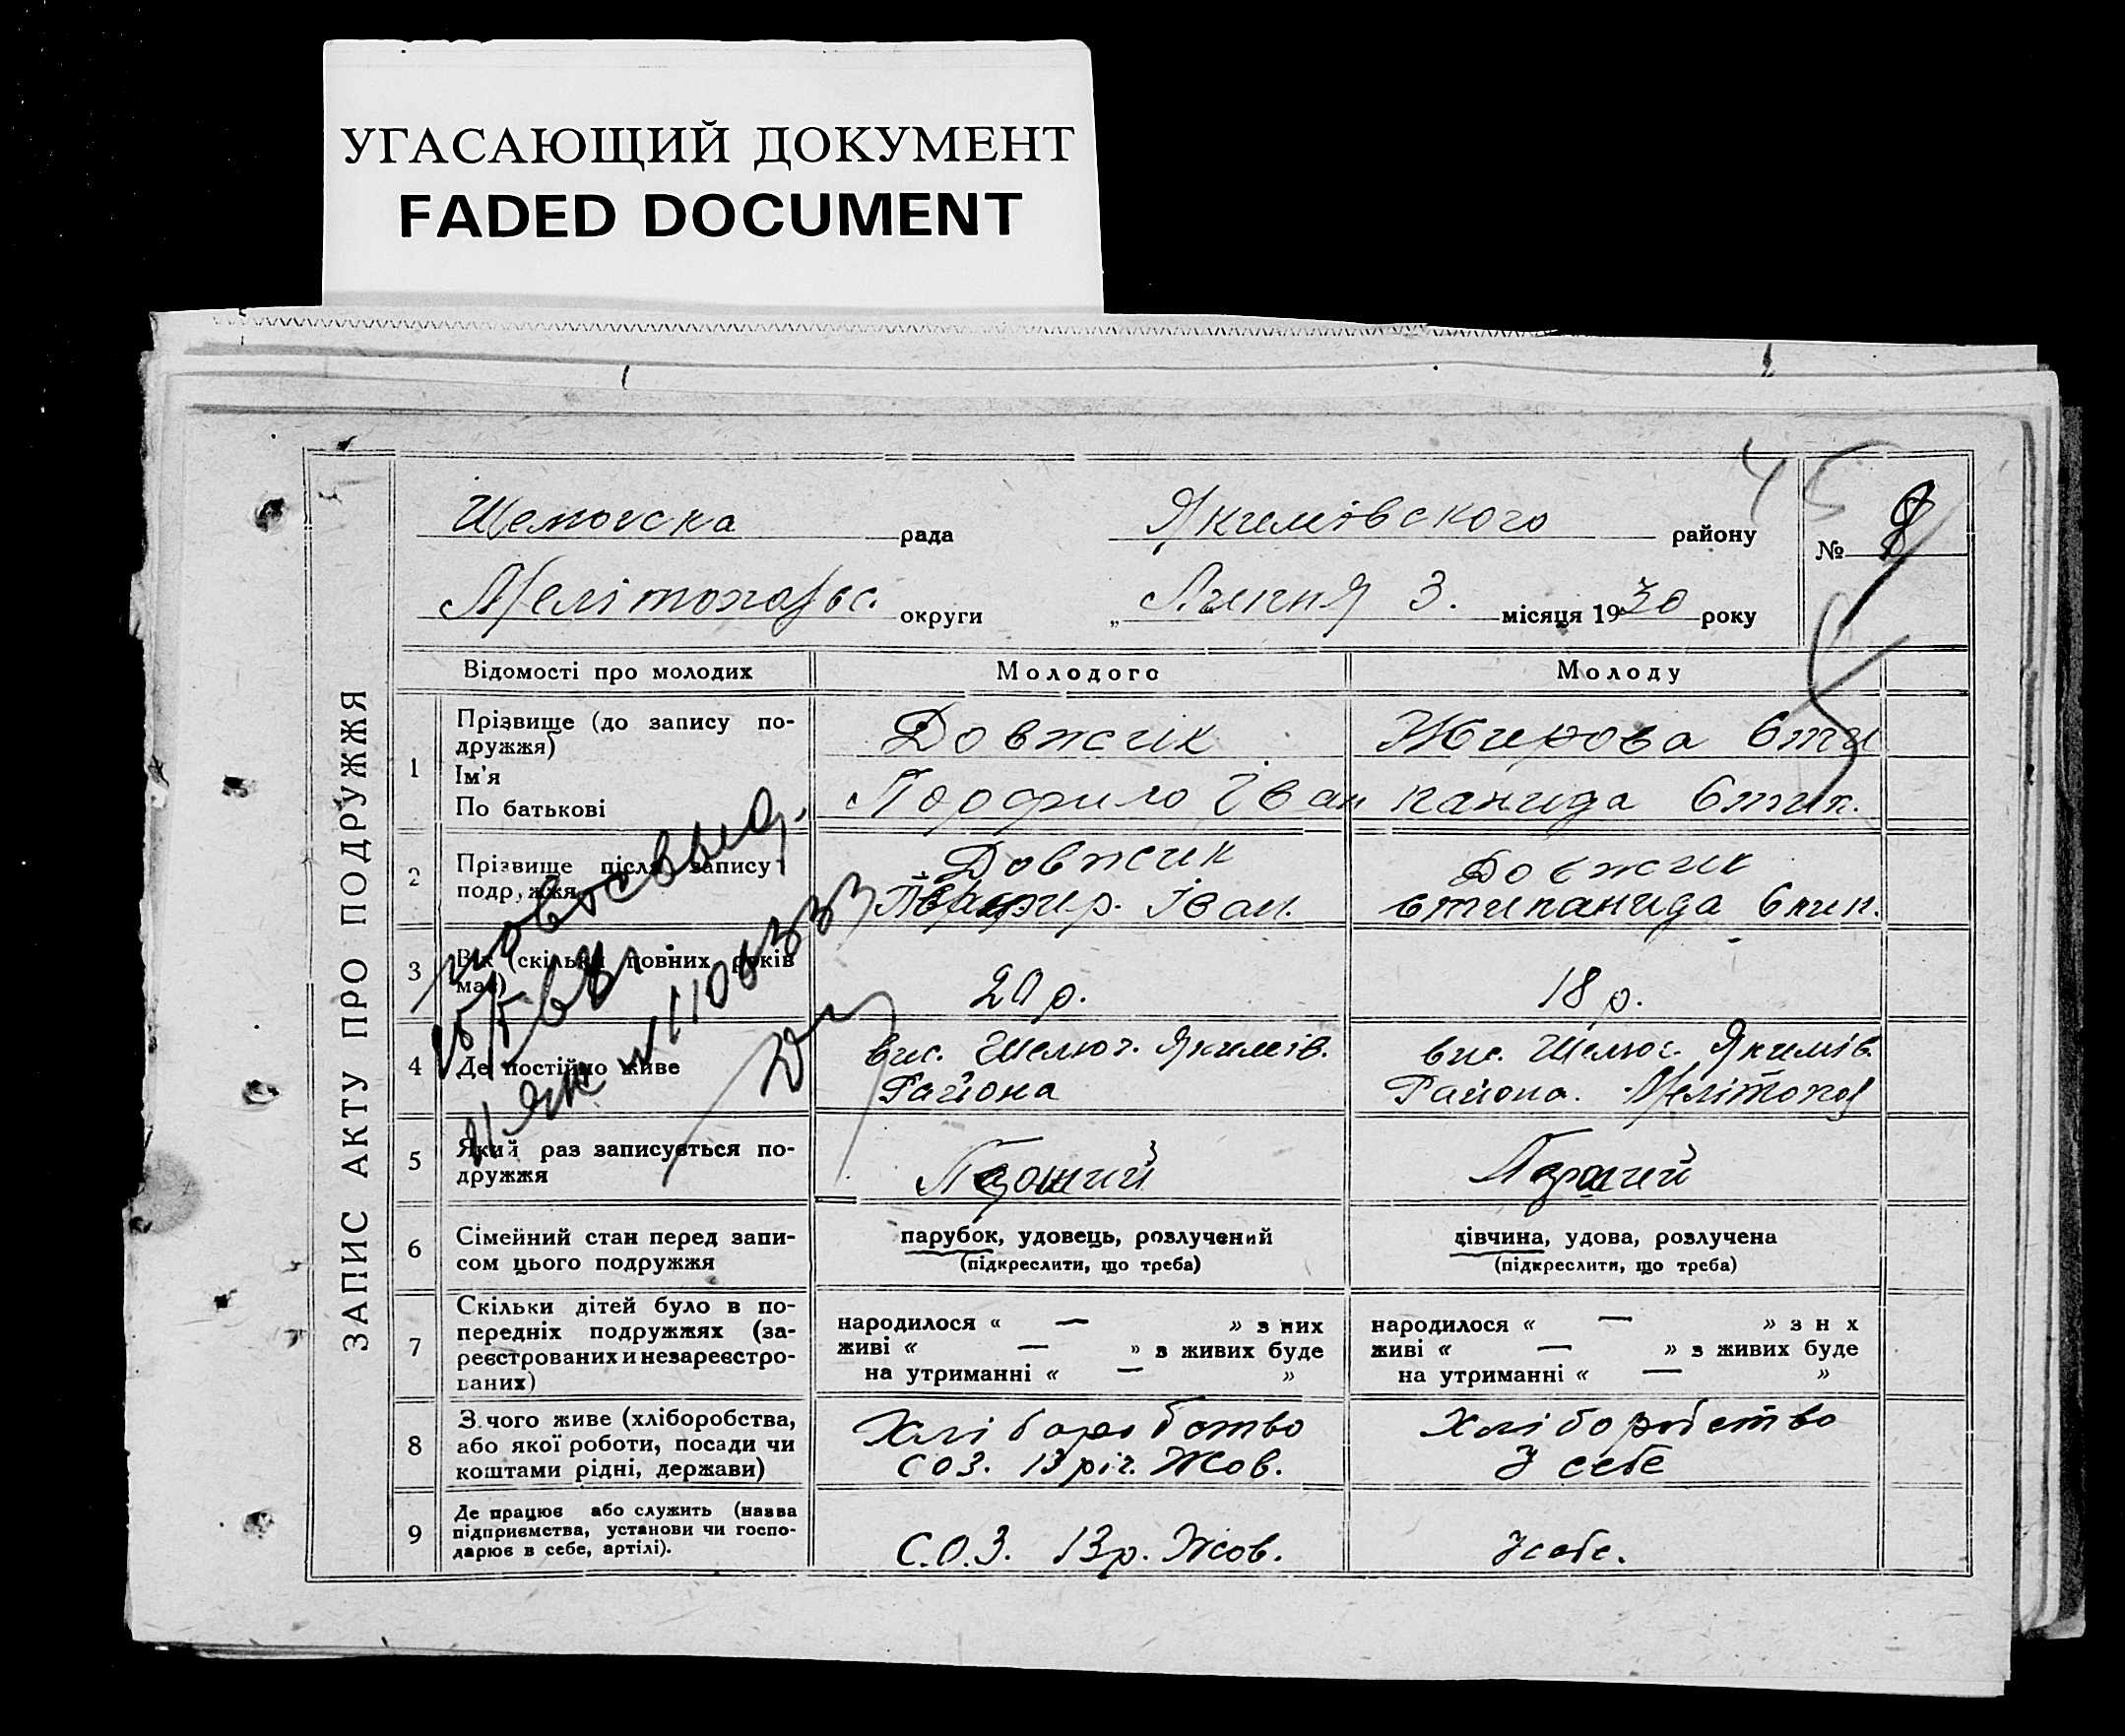 УГАСАЮЩИЙ ДОКУМЕНТ
FADED DOCUMENT
ЗАПИС АКТУ ПРО ПОДРУЖЖЯ
рада Якимівского району №
Мелітопольс. округи „ Липня 3. місяця 1930 року
Відомості про молодих Молодого Молоду
1 Прізвище (до запису по-
дружжя)
Ім'я
По батькові
Довжик Жирова Сти
Порфило Іван панида Стип.
2 Прізвище після запису
подружжя
Довжик Довжик
Іван. стипанида
3 Вік (скільки повних років
має)
20 р. 18 р.
4 Де постійно живе
вис. Шелюг. Якимів. вис. Шелюг. Якимів.
Района Района. Мелітопол
5 Який раз записується по-
дружжя
Перший Перший
6 Сімейний стан перед запи-
сом цього подружжя
парубок, удовець, розлучений дівчина, удова, розлучена
(підкреслити, що треба) (підкреслити, що треба)
7 Скільки дітей було в по-
передніх подружжях (за-
реєстрованих и незареєстро-
ваних)
народилося « — » з них народилося « — » з н х
живі « — » з живих буде живі « — » з живих буде
на утриманні « — » на утриманні « — »
8 З чого живе (хліборобства,
або якої роботи, посади чи
коштами рідні, держави)
Хліборобство Хліборобство
СОЗ. 13 річ. Жов. У себе
9 Де працює або служить (назва
підприємства, установи чи госпо-
дарює в себе, артілі).
С.О.З. 13 р. Жов. У себе.